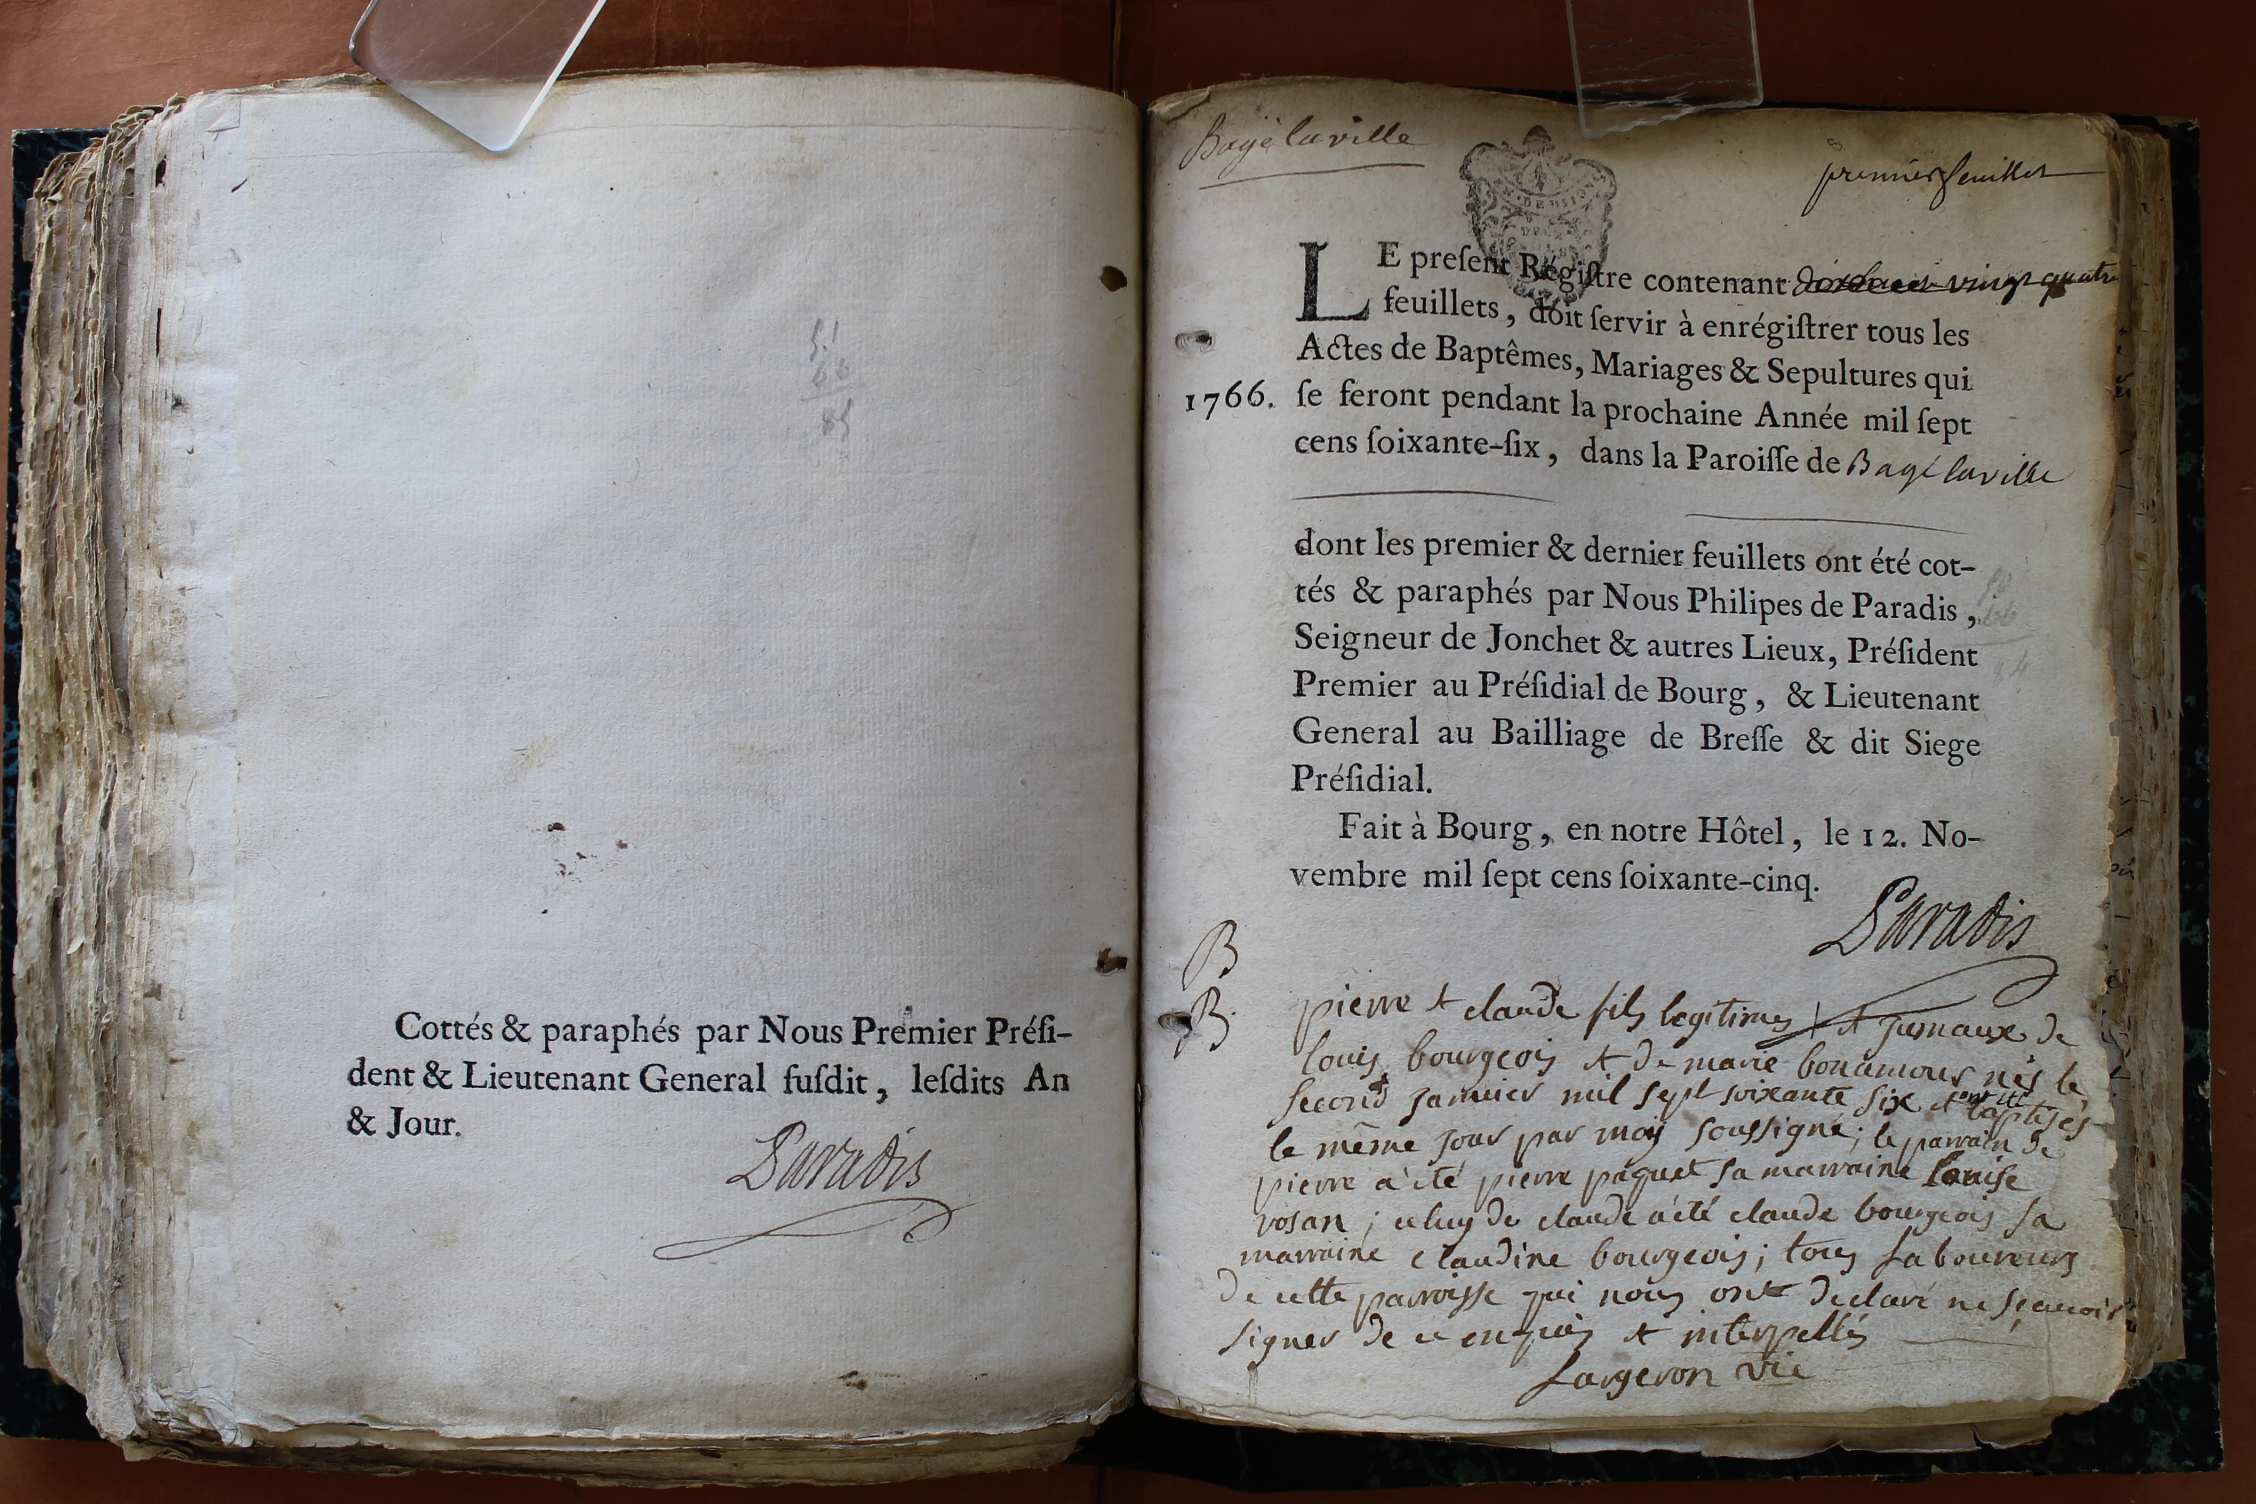 Cottés & paraphés par Nous Premier Préſi-
dent & Lieutenant General ſuſdit, leſdits An
& Jour.
Paradis
Bagé laville
premier feuillet
LE preſent Régiſtre contenant vingt quatre
feuillets, doit ſervir à enrégiſtrer tous les
Actes de Baptêmes, Mariages & Sepultures qui
1766. ſe feront pendant la prochaine Année mil ſept
cens ſoixante-ſix, dans la Paroiſſe de Bagé laville
dont les premier & dernier feuillets ont été cot-
tés & paraphés par Nous Philipes de Paradis,
Seigneur de Jonchet & autres Lieux, Préſident
Premier au Préſidial de Bourg, & Lieutenant
General au Bailliage de Breſſe & dit Siege
Préſidial.
Fait à Bourg, en notre Hôtel, le 12. No-
vembre mil ſept cens ſoixante-cinq.
Paradis
B
B.
pierre et claude fils legitimes et jumaux de
louis bourgeois et de marie bonamour nés le
second janvier mil sept soixante six et ont été baptisés
le même jour par moy soussigné; le parrain de
pierre a été pierre paquet sa marraine louise
rosan; celuy de claude a été claude bourgeois sa
marraine claudine bourgeois; tous laboureurs
de cette parroisse qui nous ont declaré ne sçavoir
signer de ce enquis et interpellés
Largeron vic